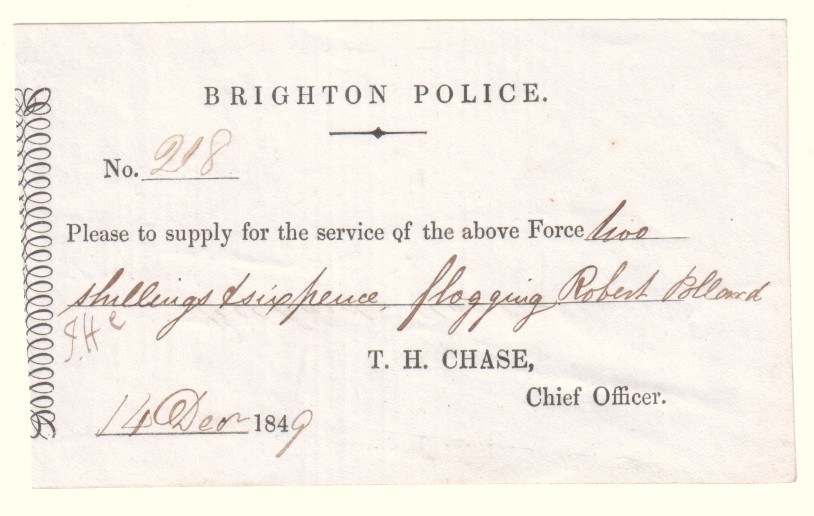 BRIGHTON POLICE.
No. 218
Please to supply for the service of the above Force two
shillings & sixpence, flogging Robert Pollard
T. H. CHASE,
Chief Officer.
14 Decr 1849